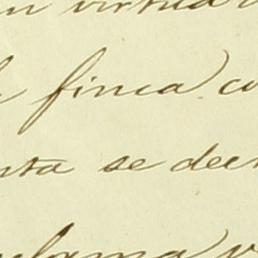 en virtud
finca co
nta se decr
clama v